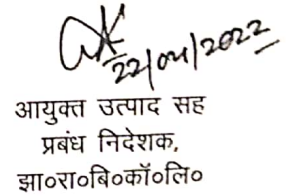 22/04/2022
आयुक्त उत्पाद सह
प्रबंध निदेशक,
झा०रा०बि०कॉ०लि०